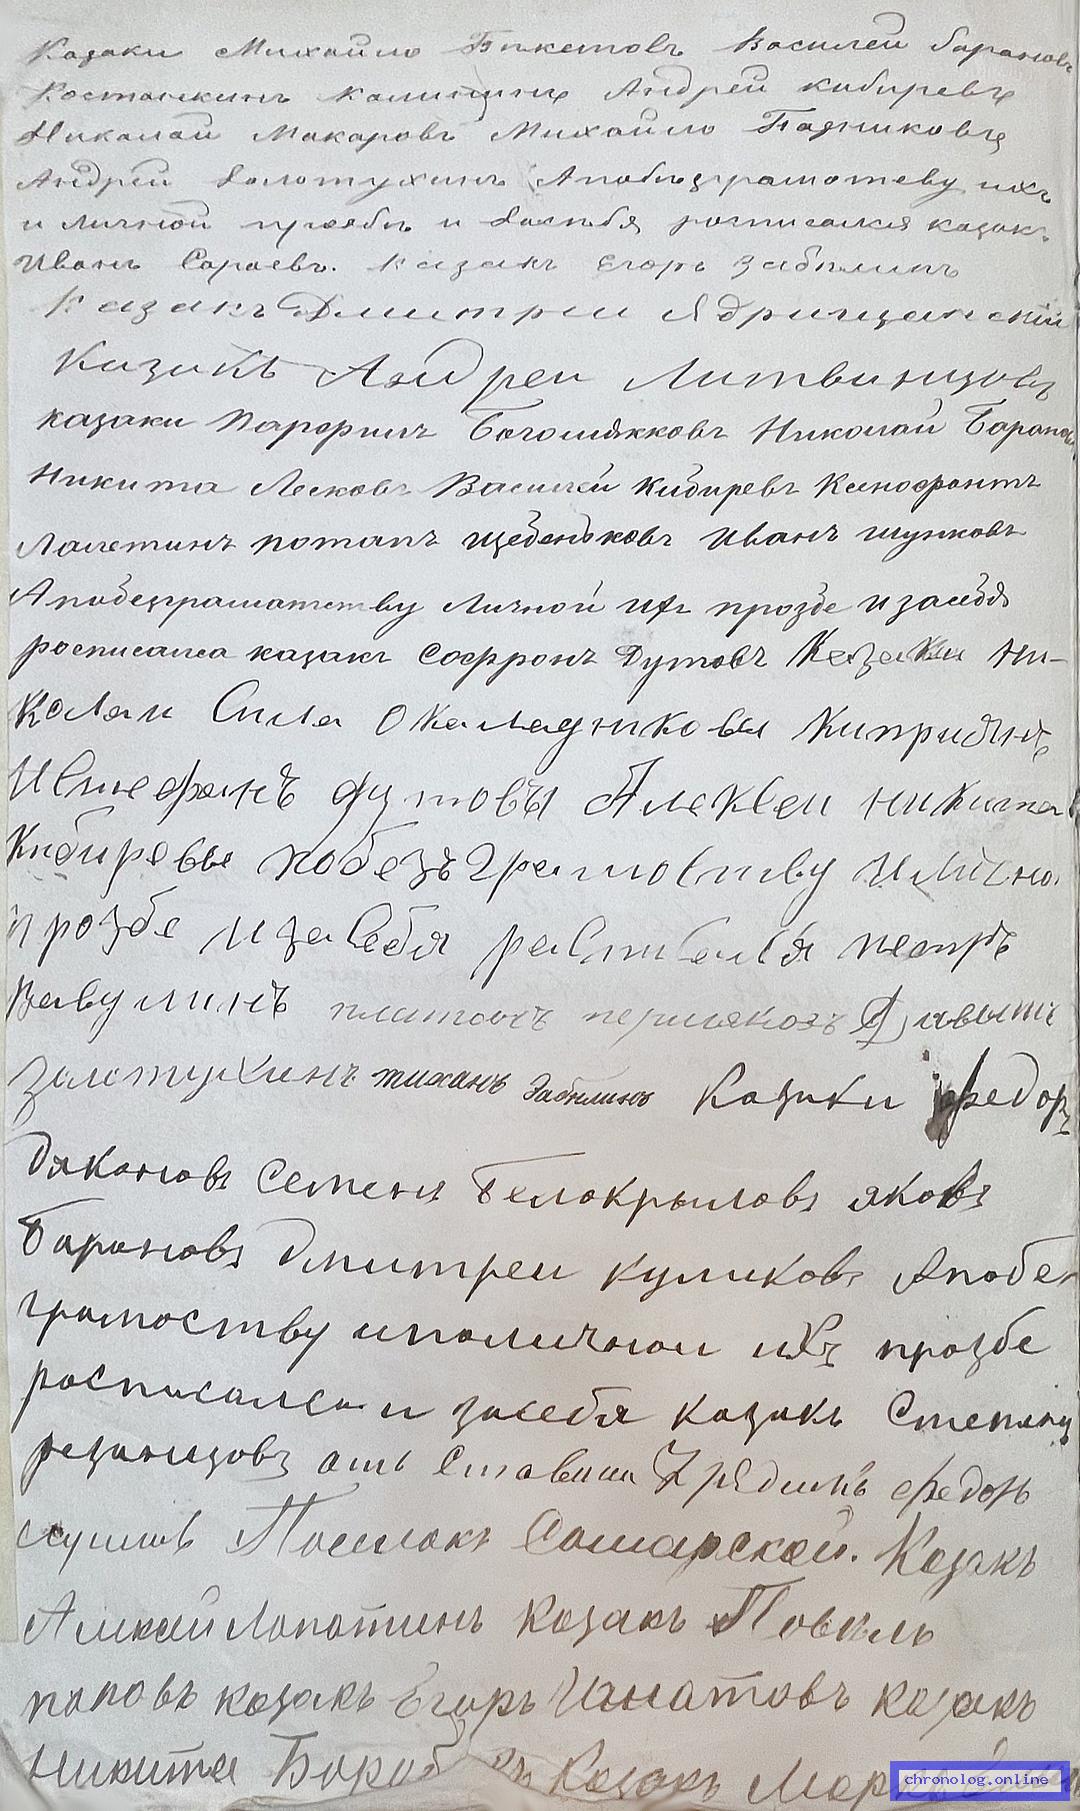 Казаки Михайло Бикетовъ Василей баранов
Костенкинъ Калининъ Андрей кибиревъ
Николай Макаровъ Михайло Падчиковъ
Андрей Золотухинъ Апобезграмотеву ихъ
и личной прозбѣ и засѣбя росписался казакъ
Иванъ Сараевъ. Казакъ Егоръ Забелинъ
Казакъ Дмитреи Ядрищенский
Казакъ Андреи Литвинцовъ
казаки Парфилъ Богомяковъ Николай Барано
Никита Лесковъ Василей Кибиревъ Ксенофонтъ
Лалетинъ потапъ щебеньковъ Иванъ шунковъ
Апобезграматству Личной ихъ прозбе изасебя
росписался казакъ Софронъ Дутовъ Казаки Ни-
Колаи Сила Окаладниковы Киприянъ
Истефанъ дутовы Алексеи никита
Кибиревы побезъграмоству Илично
прозбе изасебя расписался петръ
Вавулинъ платонъ пермяковъ Давыть
золотухинъ тиханъ Забелинъ Казаки федоръ
дяконовъ Семенъ Белокрыловъ яковъ
Барановъ дмитреи куликовъ Апобез
грамоству иполичнои ихъ прозбе
росписалси и засебя казакъ Степанъ
резанцовъ отъ Ставный Урядникъ федоръ
Поселокъ Самарской. Казакъ
Алексей Лопатинъ Казакъ Повель
поповъ казакъ Егоръ Игнатовъ казакъ
Никита Казакъ
chronolog.online